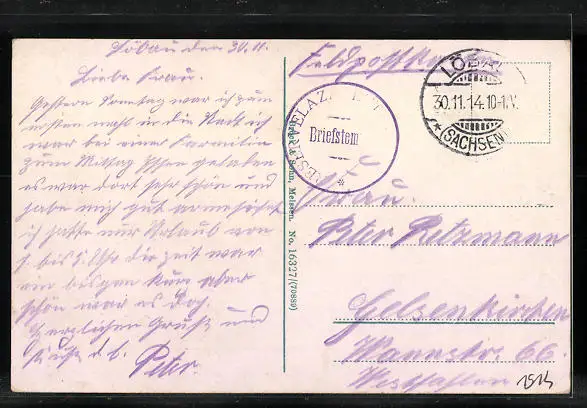 Löbau den 30.11.
Liebe Frau.
Gestern Sonntag war ich zum
ersten mahl in die Stadt ich
war bei einer Familie
zum Mittag Essen geladen
es war dort sehr schön und
habe mich gut amesiert
ich hatte nur Urlaub von
1. bis 5. Uhr die Zeit war
ein bisgen kurz aber
schön war es doch.
Herzlichen Gruß und
Kuß d. l. Peter
Feldpostkarte
RESERVELAZ
Briefstem
LÖBAU
30.11.14.10-1.V.
*(SACHSEN)
Meissen. No. 16327/(70889)
Frau
Peter Retzmann
Gelsenkirchen
Wannstr. 66.
Westfahlen
1914